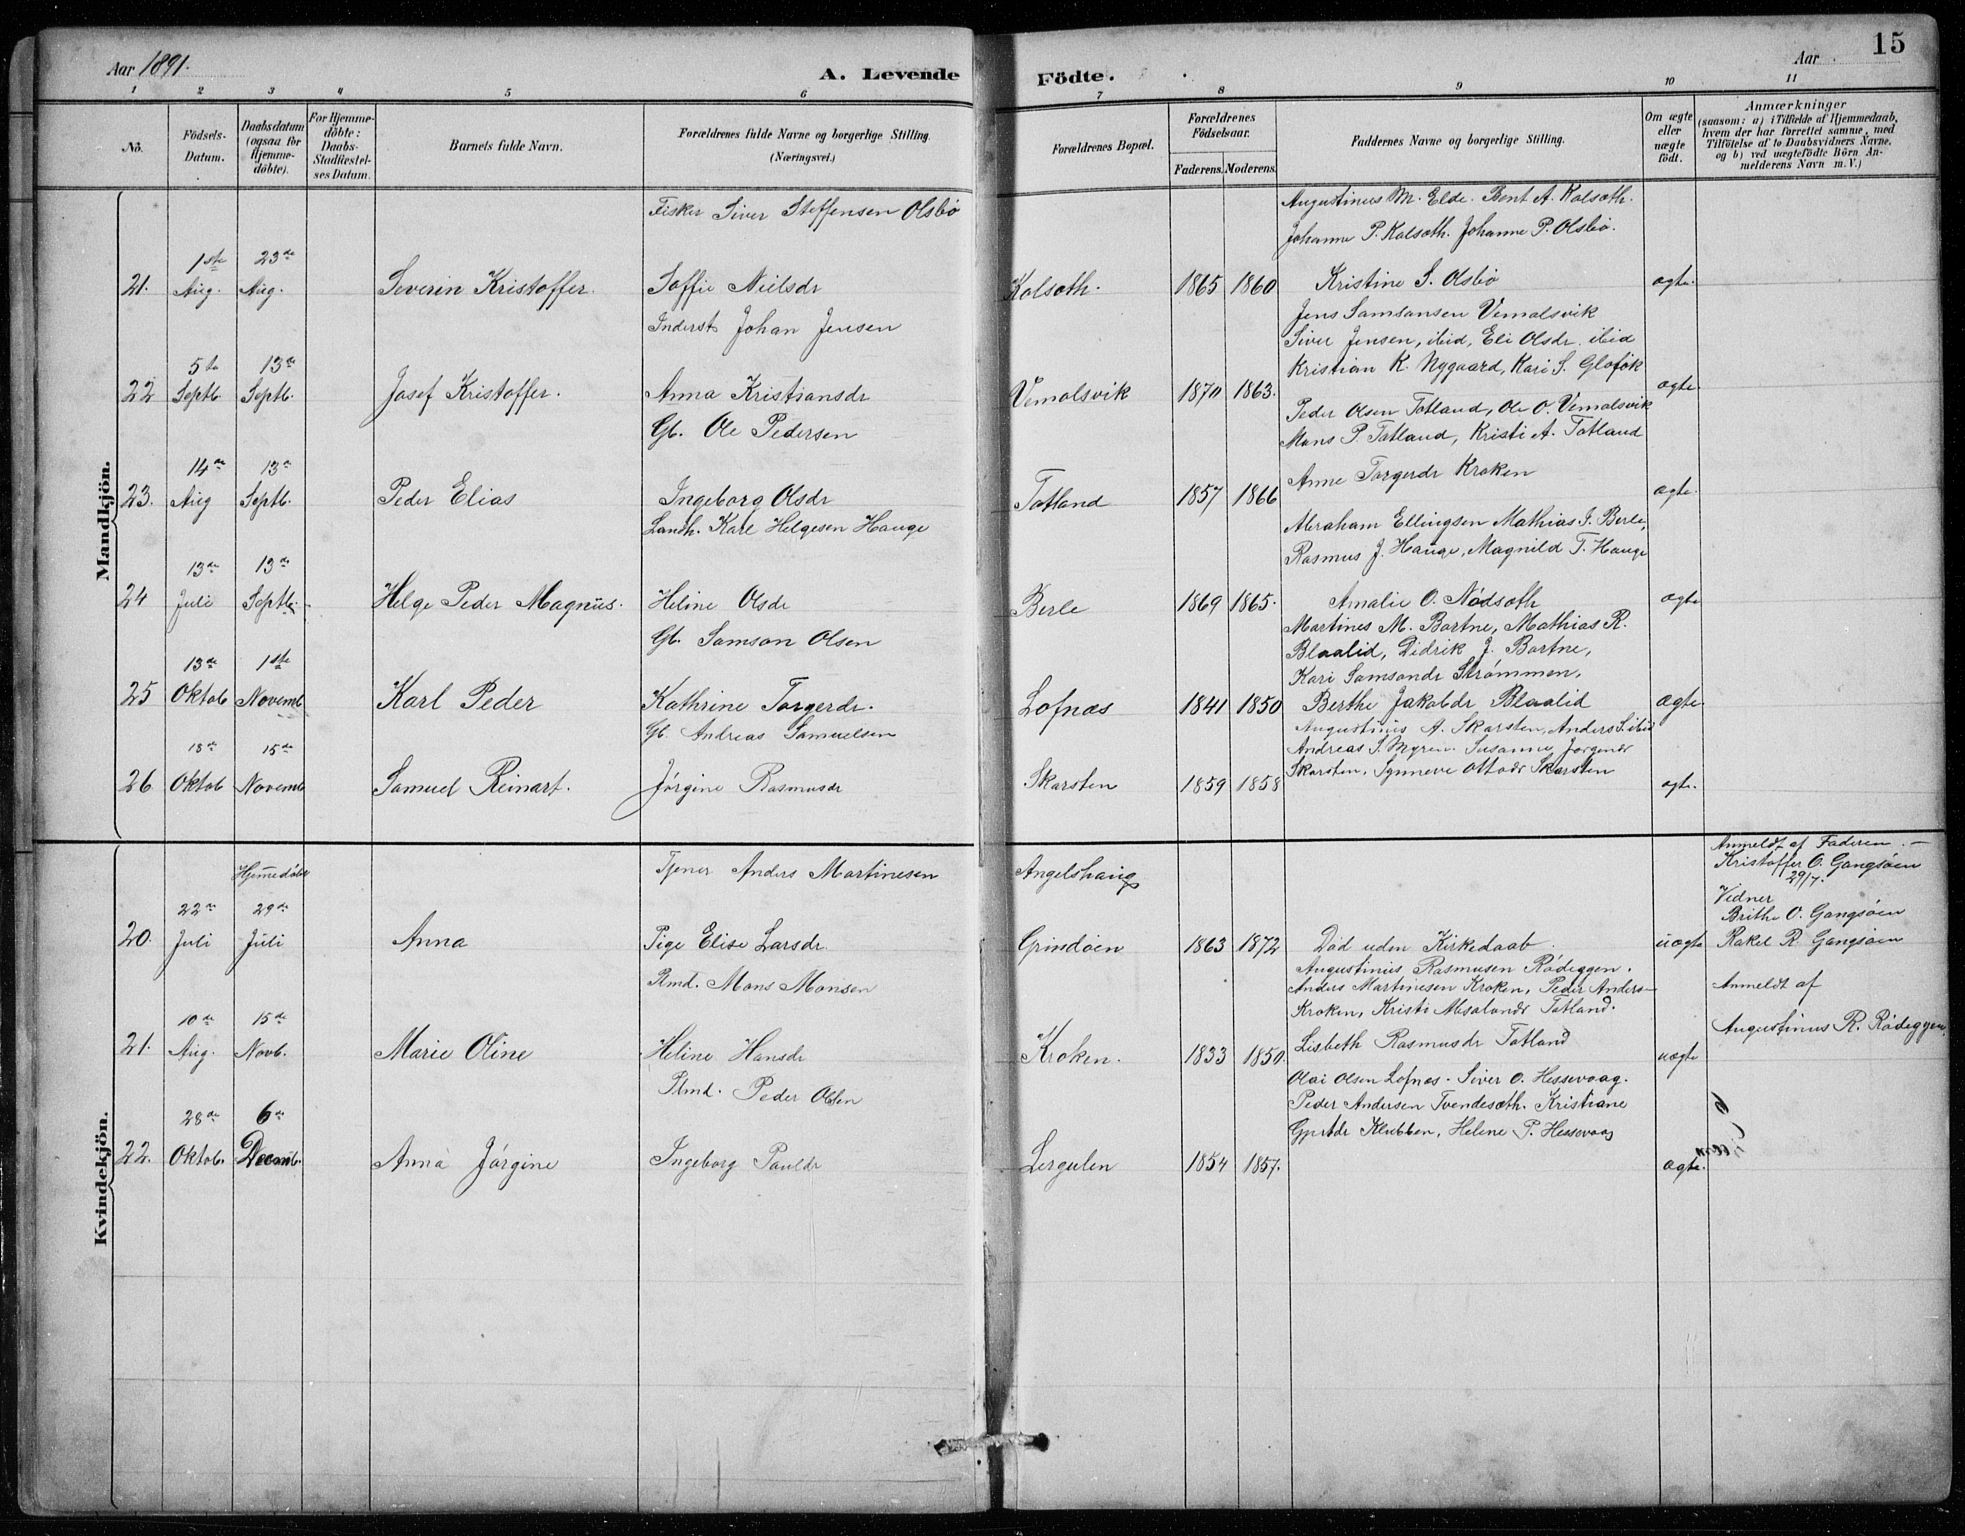 Aar 1891.
A. Levende
Födte.
Aar
15
1
2
3
4
5
6
7
8
9
10
11
No.
Födsels-
Datum.
Daabsdatum
(ogsaa for
Hjemme-
döbte).
For Hjemme-
döbte:
Daabs-
Stadfæstel-
ses Datum.
Barnets fulde Navn.
Forældrenes fulde Navne og borgerlige Stilling.
(Næringsvei.)
Forældrenes Bopæl.
Forældrenes
Födselsaar.
Faderens.
Moderens.
Faddernes Navne og borgerlige Stilling.
Om ægte
eller
uægte
födt.
Anmærkninger
(saasom: a) i Tilfælde af Hjemmedaab,
hvem der har forrettet samme, med
Tilföielse af to Daabsvidners Navne,
og b) ved uægtefödte Börn An-
melderens Navn m. V.)
Mandkjön.
Fisker Siver Steffensen Olsbö
Augustinus M. Elde. Bent A. Kalsæth.
Johanne P. Kalsæth. Johanne P. Olsbö.
1ste 23de
21. Aug. Aug. Severin Kristoffer. Soffie Nielsdr Kolsæth. 1865 1860 Kristine S. Olsbö ægte.
Inderst Johan Jensen
Jens Samsonsen Vemalsvik
Siver Jensen, ibid, Eli Olsdr. ibid
5te 13de
Kristian K. Nygaard, Kari S.
22 Septb. Septb. Josef Kristoffer. Anna Kristiansdr Vemalsvik 1870 1863. ægte
Gb. Ole Pedersen
Peder Olsen Totland, Ole O. Vemalsvik
Mons P. Totland, Kristi A. Totland
14de 13de
Anne Torgerdr Kroken
23. Aug Septb. Peder Elias Ingeborg Olsdr Totland 1857 1866 ægte.
Landh. Karl Helgesen Hauge
Abraham Ellingsen Mathias J. Berle,
Rasmus J. Hauge, Magnild T. Hauge
13de 13de
24 Juli Septb. Helge Peder Magnus. Heline Olsdr Berle 1869 1865. Amalie O. Nödsæth ægte
Gb. Samson Olsen
Martines M. Bortne, Mathias R.
Blaalid, Didrik J. Bortne,
Kari Samsondr Strømmen,
13de 1ste
25 Oktob Novemb Karl Peder Kathrine Torgerdr. Lofnæs 1841 1850 Berthe Jakobdr Blaalid Ægte.
Gb. Andreas Samuelsen
Augustinus A. Skarsten, Anders S. ibid
Andreas S. Myren. Susanne Jörgendr
18de 15de
Skarsten. Synneve Ottodr Skarsten
26 Oktob Novemb Samuel Reinart. Jörgine Rasmusdr Skarsten 1859 1858 ægte.
Kvindekjön.
Hjemmedöbt
Tjener Anders Martinesen Angelshaug
Anmeldt af Faderen.
Kristoffer O. Gangsöen
29/7.
Vidner
Brithe O. Gangsöen
22de 29de
20. Juli Juli Anna Pige Elise Larsdr. Grindöen 1863 1872 Död uden Kirkedaab. uægte Rakel R. Gangsöen
Rmd. Mons Monsen
Augustinus Rasmusen Rödeggen.
Anders Martinesen Kroken, Peder Anders-
Kroken, Kristi Absalondr Totland.
Anmeldt af
Augustinus R. Rödeggen.
10de 15de
21. Aug. Novb. Marie Oline Heline Hansdr Kroken. 1833 1850. Lisbeth Rasmusdr Totland uægte
Plmd. Peder Olsen
Olai Olsen Lofnæs. Siver O. Hessevaag.
Peder Andersen Tvendesæth. Kristiane
Klubben, Helene P. Hessevaag
28de 6te
22. Oktob. Decemb. Anna Jörgine Ingeborg Pauldr Lergulen 1854 1857. Ægte.